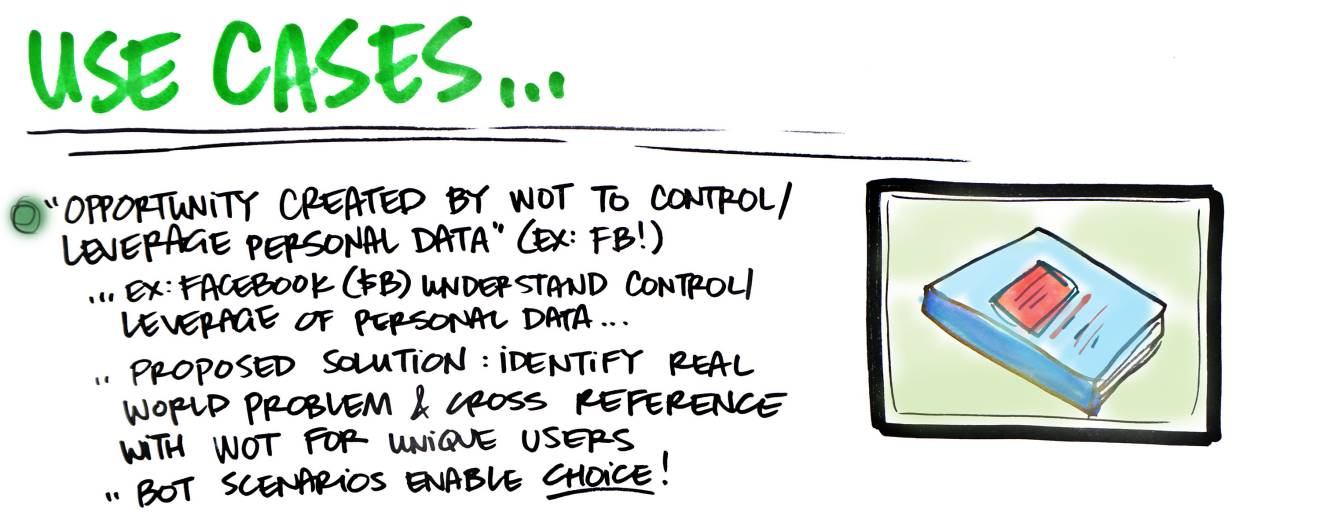 USE CASES...
"OPPORTUNITY CREATED BY WOT TO CONTROL/
LEVERAGE PERSONAL DATA" (EX: FB!)
... EX: FACEBOOK ($B) UNDERSTAND CONTROL/
LEVERAGE OF PERSONAL DATA...
.. PROPOSED SOLUTION: IDENTIFY REAL
WORLD PROBLEM & CROSS REFERENCE
WITH WOT FOR UNIQUE USERS
" BOT SCENARIOS ENABLE CHOICE!